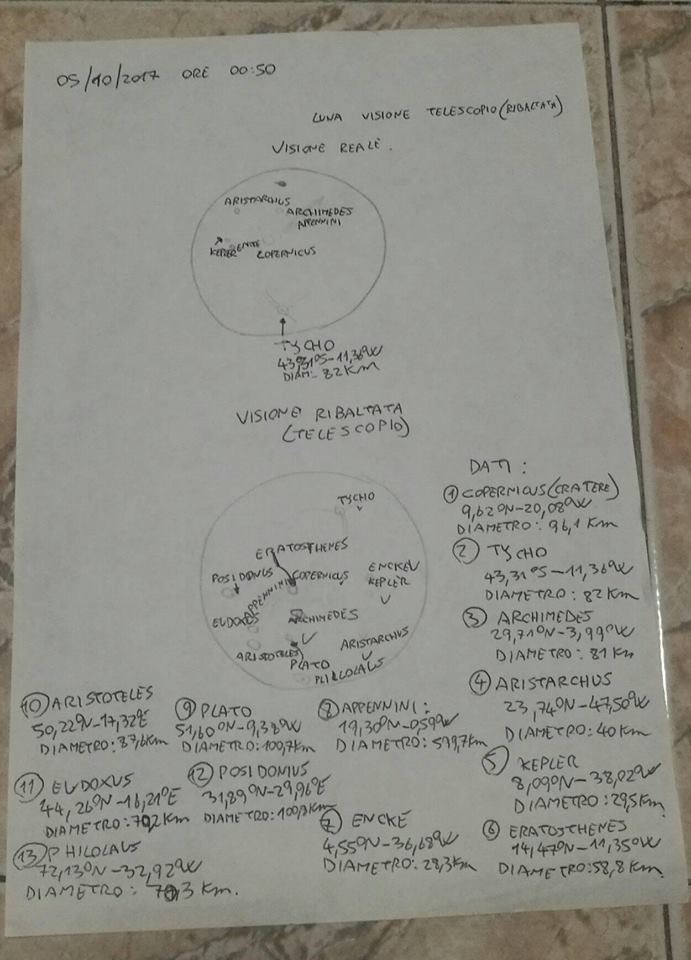 05/10/2017 ORE 00:50
LUNA VISIONE TELESCOPIO (RIBALTATA)
VISIONE REALE.
ARISTARCHUS
ARCHIMEDES
APPENNINI
KEPLER ENCKE
COPERNICUS
TYCHO
43,31°S-11,36°W
DIAM: 82 KM
VISIONE RIBALTATA
(TELESCOPIO)
TYCHO
ERATOSTHENES
POSIDONUS
COPERNICUS
ENCKEL
KEPLER
APPENNINI
EUDOXUS
ARCHIMEDES
ARISTOTELES
ARISTARCHUS
PLATO
PHILOLAUS
DATI:
① COPERNICUS (CRATERE)
9,62°N-20,08°W
DIAMETRO: 96,1 Km
② TYCHO
43,31°S-11,36°W
DIAMETRO: 82 Km
③ ARCHIMEDES
29,71°N-3,99°W
DIAMETRO: 81 Km
④ ARISTARCHUS
23,74°N-47,50°W
DIAMETRO: 40 Km
⑤ KEPLER
8,09°N-38,02°W
DIAMETRO: 29,5 Km
⑥ ERATOSTHENES
14,47°N-11,35°W
DIAMETRO: 58,8 Km
⑦ ENCKE
4,55°N-36,68°W
DIAMETRO: 28,3 Km
⑧ APPENNINI:
19,30°N-0,59°W
DIAMETRO: 599,7 Km
⑨ PLATO
51,60°N-9,38°W
DIAMETRO: 100,7 Km
⑩ ARISTOTELES
50,22°N-17,32°E
DIAMETRO: 87,6 Km
⑪ EUDOXUS
44,26°N-16,21°E
DIAMETRO: 70,2 Km
⑫ POSIDONIUS
31,89°N-29,96°E
DIAMETRO: 100,3 Km
⑬ PHILOLAUS
72,13°N-32,92°W
DIAMETRO: 70,3 Km.